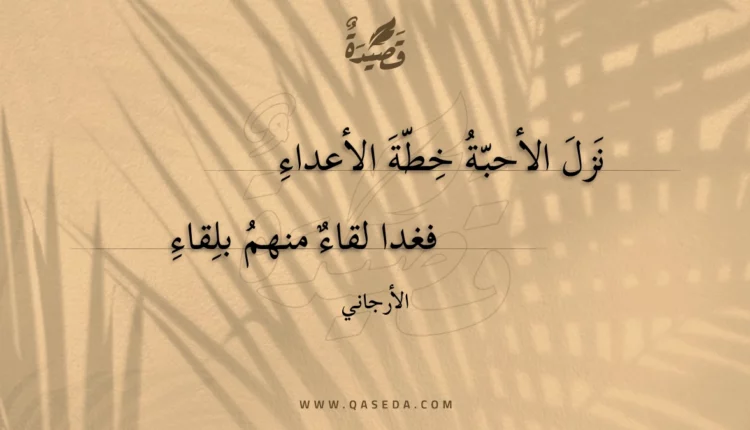 قَصِيْدَةٌ
نَزلَ الأحبّةُ خِطّةَ الأعداءِ
فغدا لقاءٌ منهمُ بلِقاءِ
الأرجاني
WWW.QASEDA.COM